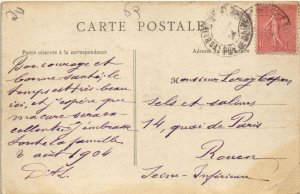 20
63
CARTE POSTALE
Partie réservée à la correspondance
Adresse du
Bon courage et
bonne santé, le
temps est très beau
ici, et j'espère que
ma cure sera ex-
cellente, j'embrasse
toute la famille
6 août 1904
Monsieur Leroy
sels et salines
14, quai de Paris
Rouen
Seine-Inférieure